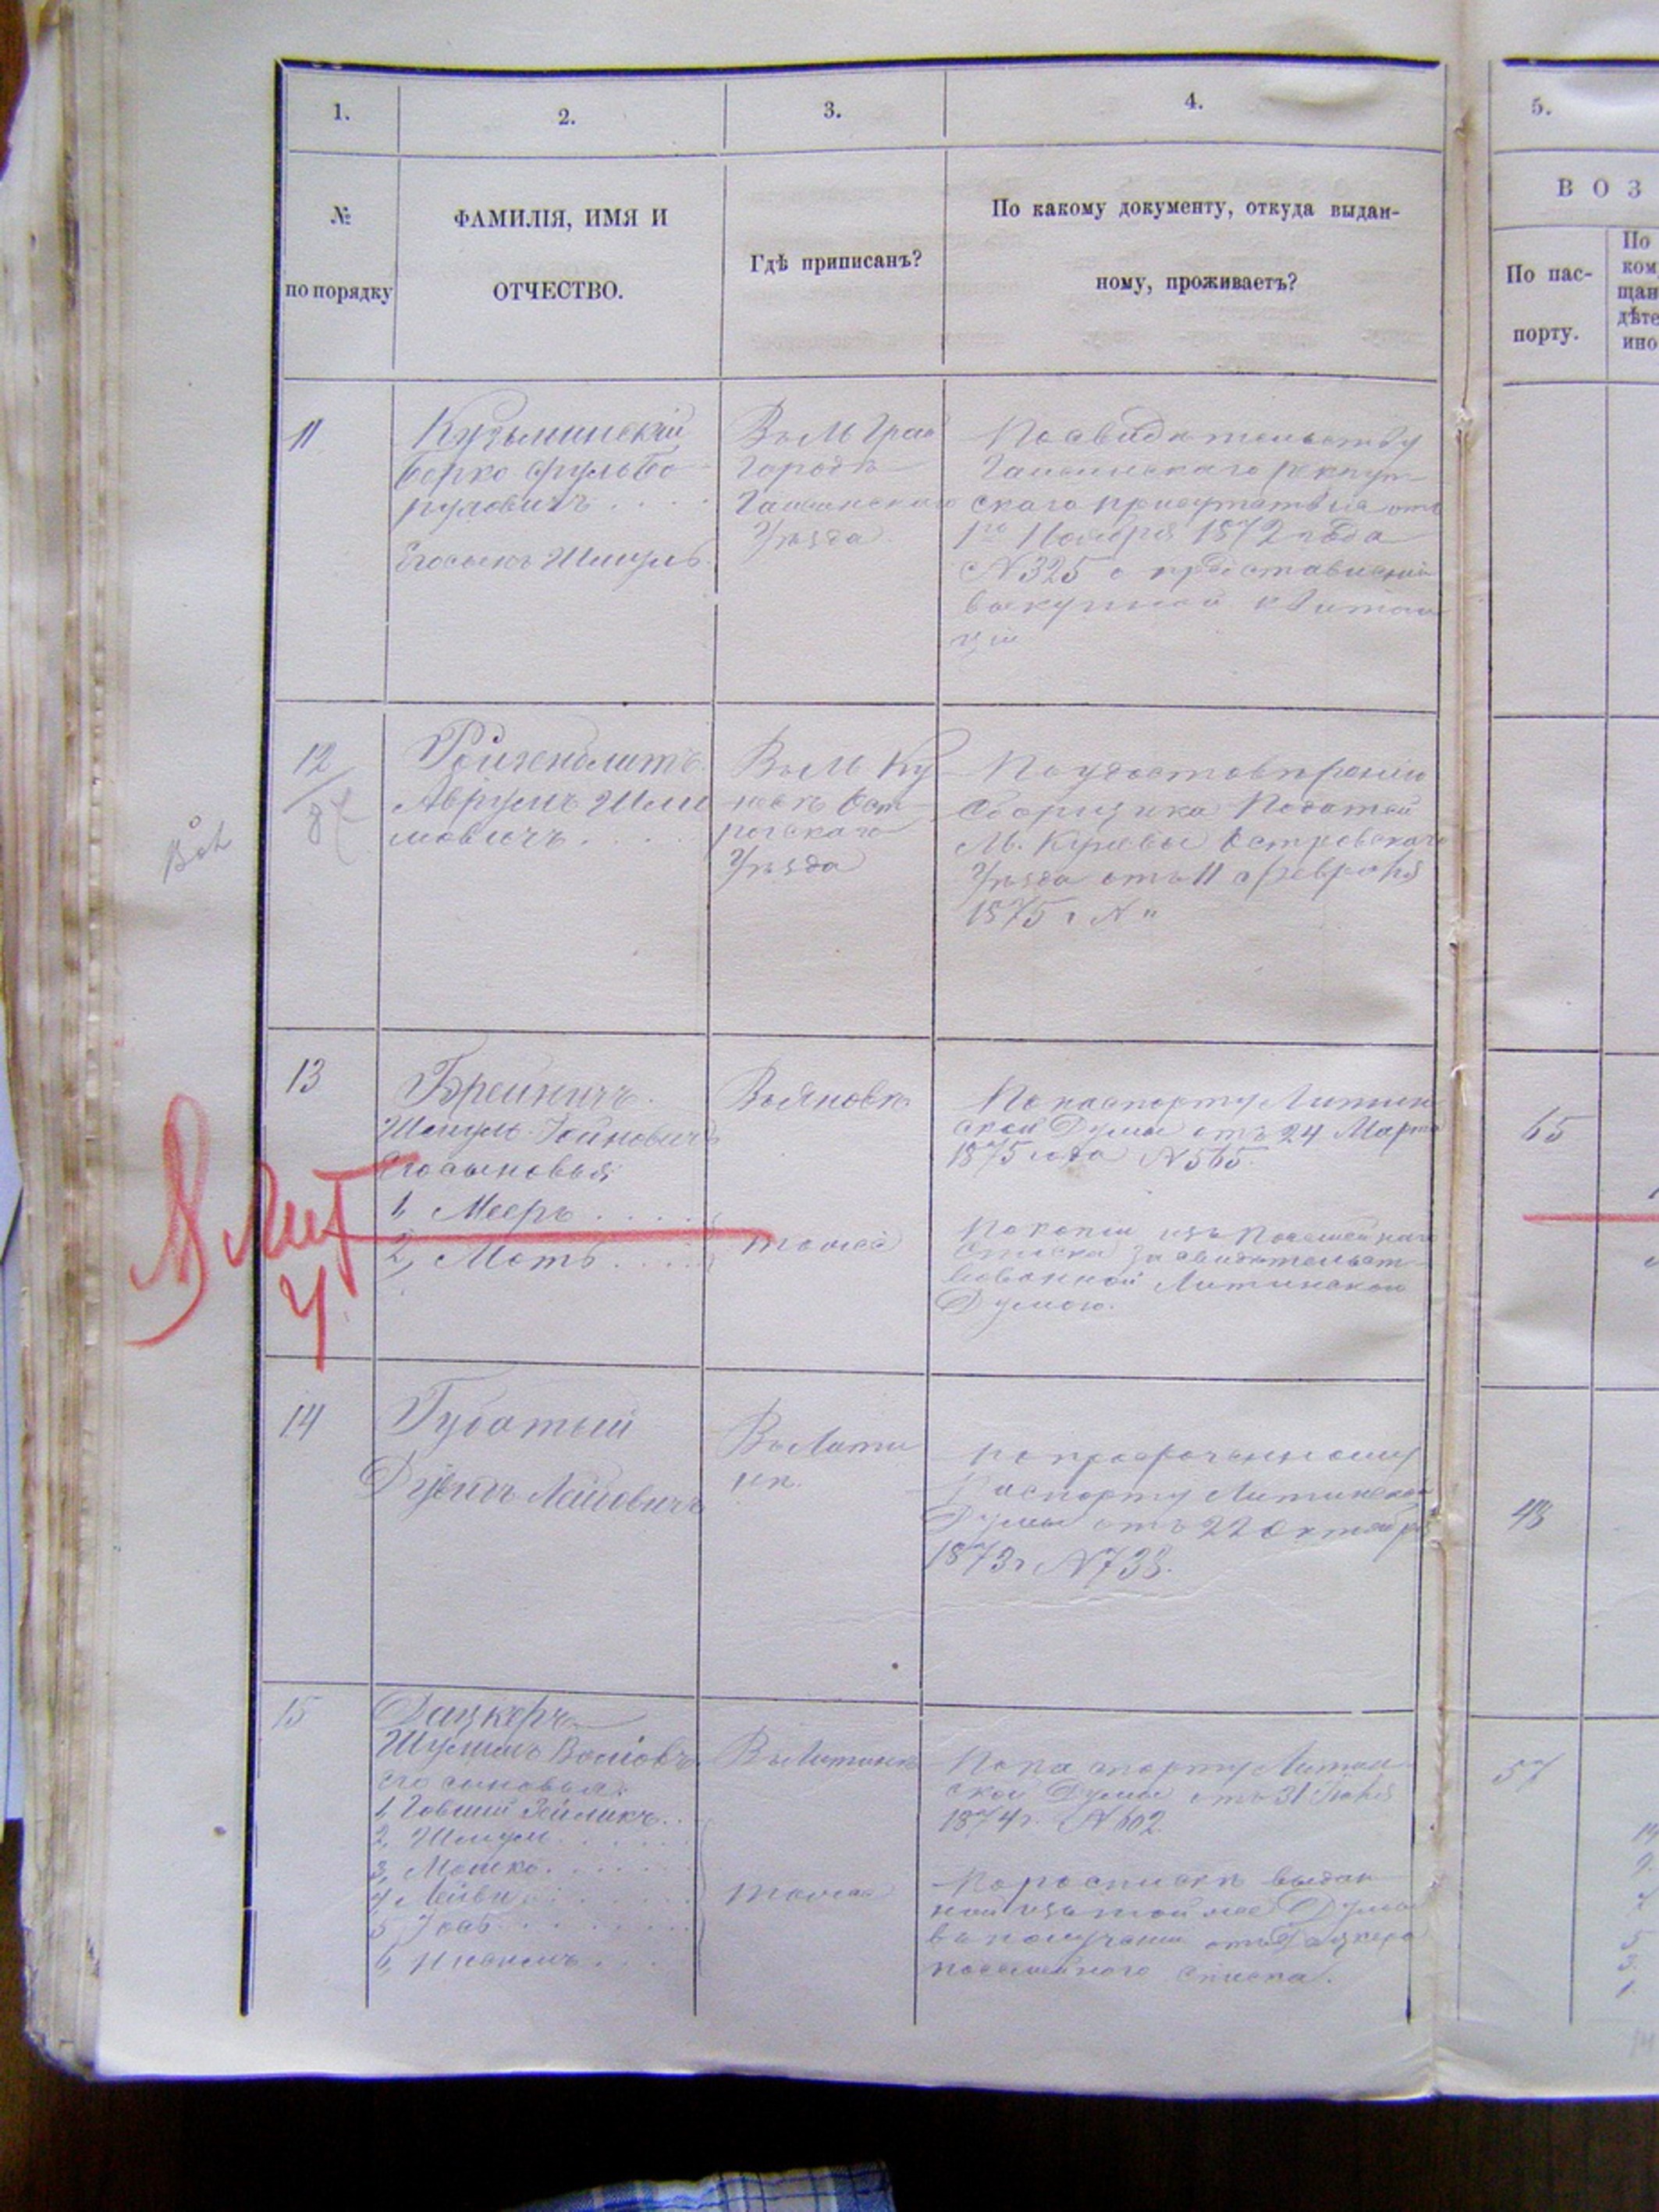 1.
2.
3.
4.
5.
№
по порядку
ФАМИЛІЯ, ИМЯ И
ОТЧЕСТВО.
Гдѣ приписанъ?
По какому документу, откуда выдан-
ному, проживаетъ?
В О З
По пас-
порту.
По
ком
щан
дѣте
ино
11
Кузьминскій
Берко Сруль Бо
руховичъ
Егосынъ Шмуль
Въ М Гра
городѣ
Гайсинскаго
Уѣзда
По свидѣтельству
Гайсинскаго рекрут
скаго присутствія отъ
1го Ноября 1872 года
N 325 о представленіи
выкупной квитан
ціи
12
87
Ройзенблитъ
Аврумъ Шли
мовичъ
Въ М Ку
невѣ Ост
рогскаго
Уѣзда
По удостовѣренію
Сборщика Податей
М. Куневы Острогскаго
Уѣзда отъ 11 Февраля
1875 г N "
13
Шмуль
Егосыновья
1, Мееръ
2, Мотъ
Въ Яновѣ
тоже
По паспорту Литин
ской Думы отъ 24 Марта
1875 года N 565.
По копіи изъ Посемейнаго
Списка Засвидѣтельст
вованной Литинскою
Думою.
65
В Лит
У.
14
Губатый
Дувидъ Лейбовичъ
Въ Лити
нѣ.
По просроченному
Паспорту Литинской
Думы отъ 22 Октября
1873 г N 738.
43
15
Дацкеръ
его сыновья:
1, Зейликъ
2, Шмуль
3, Мошко
4, Лейви
5,
6,
Въ Литинѣ
тоже
По паспорту Литин
ской Думы отъ 31 Іюля
1874 г. N 602.
По роспискѣ выдан
ной изъ той же Думы
въ полученіи отъ Дацкера
посемейнаго списка.
57